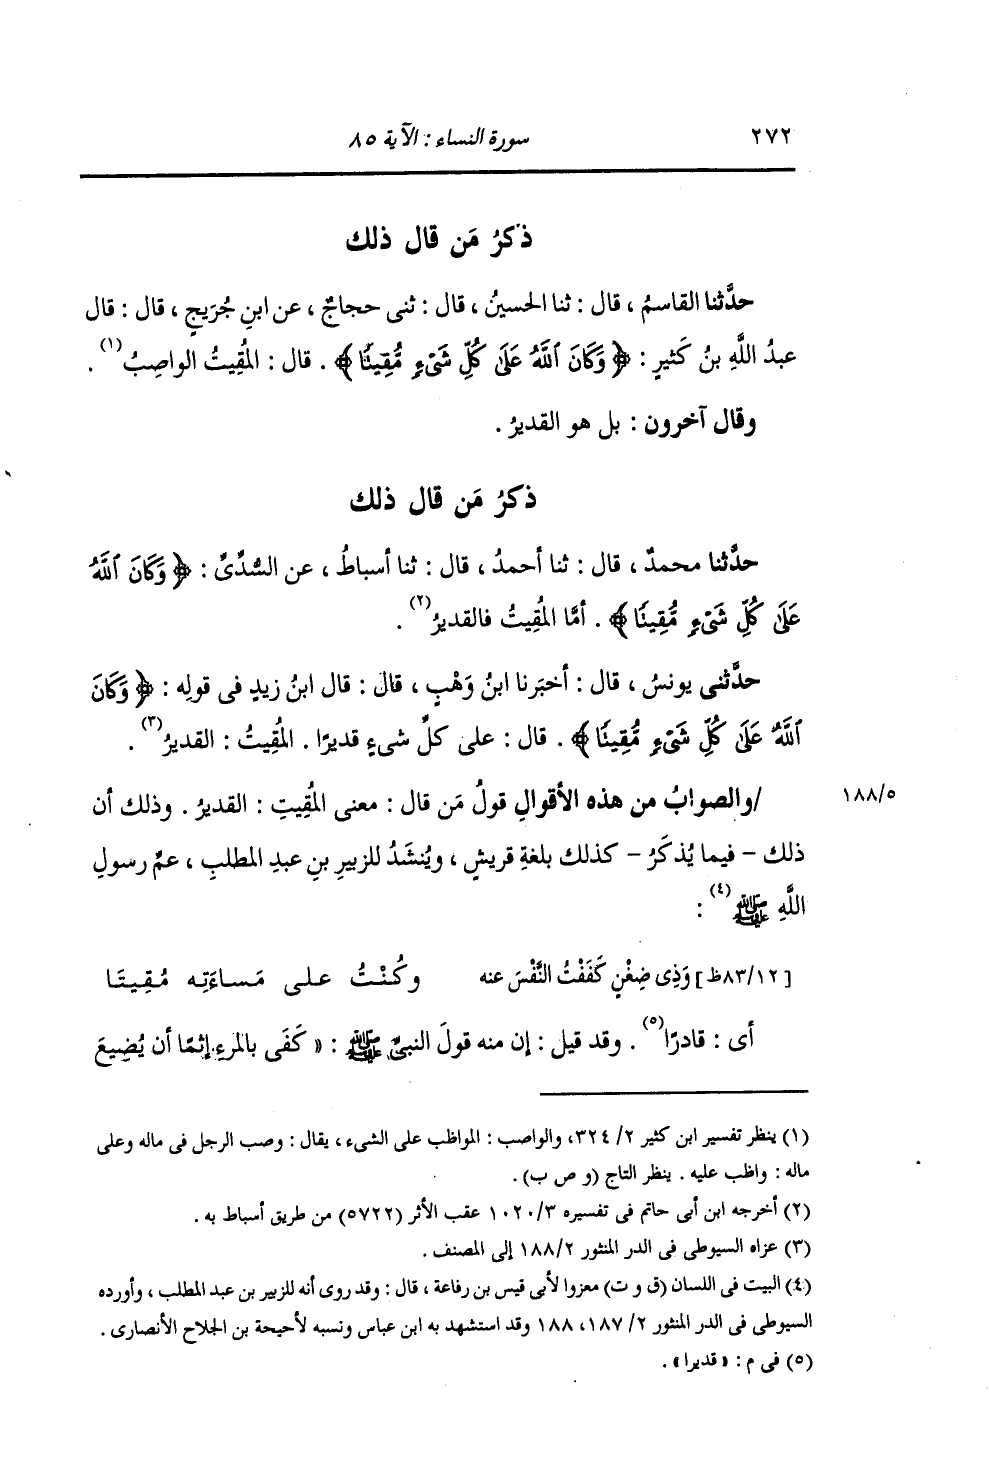 ٢٧٢
سورة النساء : الآية ٨٥
ذكرُ مَن قال ذلك
حدَّثنا القاسمُ ، قال : ثنا الحسينُ ، قال : ثنى حجاجٌ ، عن ابنِ جُرَيجٍ ، قال : قال
عبدُ اللَّهِ بنُ كَثيرٍ : ﴿ وَكَانَ ٱللَّهُ عَلَىٰ كُلِّ شَىْءٍ مُّقِينًا ﴾ . قال : المُقِيتُ الواصِبُ (١) .
وقال آخرون : بل هو القديرُ .
ذكرُ مَن قال ذلك
حدَّثنا محمدٌ ، قال : ثنا أحمدُ ، قال : ثنا أسباطُ ، عن السُّدِّىِّ : ﴿ وَكَانَ ٱللَّهُ
عَلَىٰ كُلِّ شَىْءٍ مُّقِينًا ﴾ . أمَّا المُقِيتُ فالقديرُ (٢) .
حدَّثنى يونسُ ، قال : أخبَرنا ابنُ وَهْبٍ ، قال : قال ابنُ زيدٍ فى قولِه : ﴿ وَكَانَ
ٱللَّهُ عَلَىٰ كُلِّ شَىْءٍ مُّقِينًا ﴾ . قال : على كلِّ شىءٍ قديرًا . المُقِيتُ : القديرُ (٣) .
/والصوابُ من هذه الأقوالِ قولُ مَن قال : معنى المُقِيتِ : القديرُ . وذلك أن
١٨٨/٥
ذلك - فيما يُذكَرُ - كذلك بلغةِ قريشٍ ، ويُنشَدُ للزبيرِ بنِ عبدِ المطلبِ ، عمِّ رسولِ
اللَّهِ ﷺ (٤) :
[٨٣/١٢ظ] وَذِى ضِغْنٍ كَفَفْتُ النَّفْسَ عنه وكُنْتُ على مَساءَتِه مُقِيتَا
أى : قادرًا (٥) . وقد قيل : إن منه قولَ النبىِّ ﷺ : « كَفَى بالمرءِ إثمًا أن يُضِيعَ
(١) ينظر تفسير ابن كثير ٢/ ٣٢٤، والواصب : المواظب على الشىء ، يقال : وصب الرجل فى ماله وعلى
ماله : واظب عليه . ينظر التاج (و ص ب) .
(٢) أخرجه ابن أبى حاتم فى تفسيره ١٠٢٠/٣ عقب الأثر (٥٧٢٢) من طريق أسباط به .
(٣) عزاه السيوطى فى الدر المنثور ١٨٨/٢ إلى المصنف .
(٤) البيت فى اللسان (ق و ت) معزوا لأبى قيس بن رفاعة ، قال : وقد روى أنه للزبير بن عبد المطلب ، وأورده
السيوطى فى الدر المنثور ٢/ ١٨٧، ١٨٨ وقد استشهد به ابن عباس ونسبه لأحيحة بن الجلاح الأنصارى .
(٥) فى م : « قديرا » .